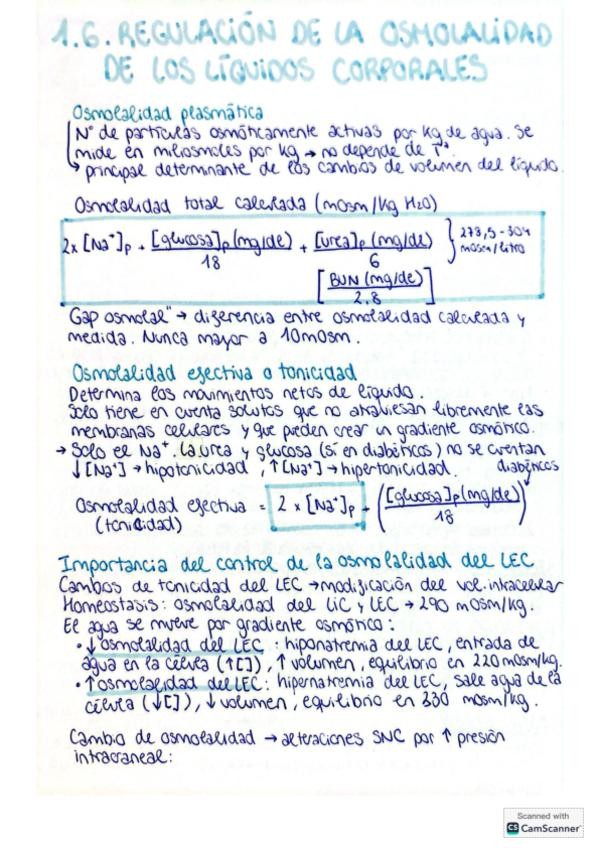 1.6. REGULACIÓN DE LA OSMOLALIDAD
DE LOS LÍQUIDOS CORPORALES
Osmolalidad plasmática
Nº de partículas osmóticamente activas por kg de agua. Se
mide en miliosmoles por kg → no depende de Tª.
↳ principal determinante de los cambios de volumen del líquido.
Osmolalidad total calculada (mosm/kg H2O)
2x [Na+]p + [glucosa]p (mg/dl) / 18 + [urea]p (mg/dl) / 6 } 273,5-304 mosm/litro
[BUN (mg/dl) / 2,8]
Gap osmolal" → diferencia entre osmolalidad calculada y
medida. Nunca mayor a 10mosm.
Osmolalidad efectiva o tonicidad
Determina los movimientos netos de líquido.
Solo tiene en cuenta solutos que no atraviesan libremente las
membranas celulares y que pueden crear un gradiente osmótico.
→ Solo el Na+. La urea y glucosa (sí en diabéticos) no se cuentan
↓[Na+] → hipotonicidad, ↑[Na+] → hipertonicidad. diabéticos
Osmolalidad efectiva = 2 x [Na+]p + ([glucosa]p (mg/dl) / 18)
(tonicidad)
Importancia del control de la osmolalidad del LEC
Cambios de tonicidad del LEC → modificación del vol. intracelular
Homeostasis: osmolalidad del LIC y LEC → 290 mosm/kg.
El agua se mueve por gradiente osmótico:
• ↓osmolalidad del LEC : hiponatremia del LEC, entrada de
agua en la célula (↑[]), ↑ volumen, equilibrio en 220mosm/kg.
• ↑osmolalidad del LEC: hipernatremia del LEC, sale agua de la
célula (↓[]), ↓ volumen, equilibrio en 330 mosm/kg.
Cambio de osmolalidad → alteraciones SNC por ↑ presión
intracraneal:
Scanned with
CS CamScanner